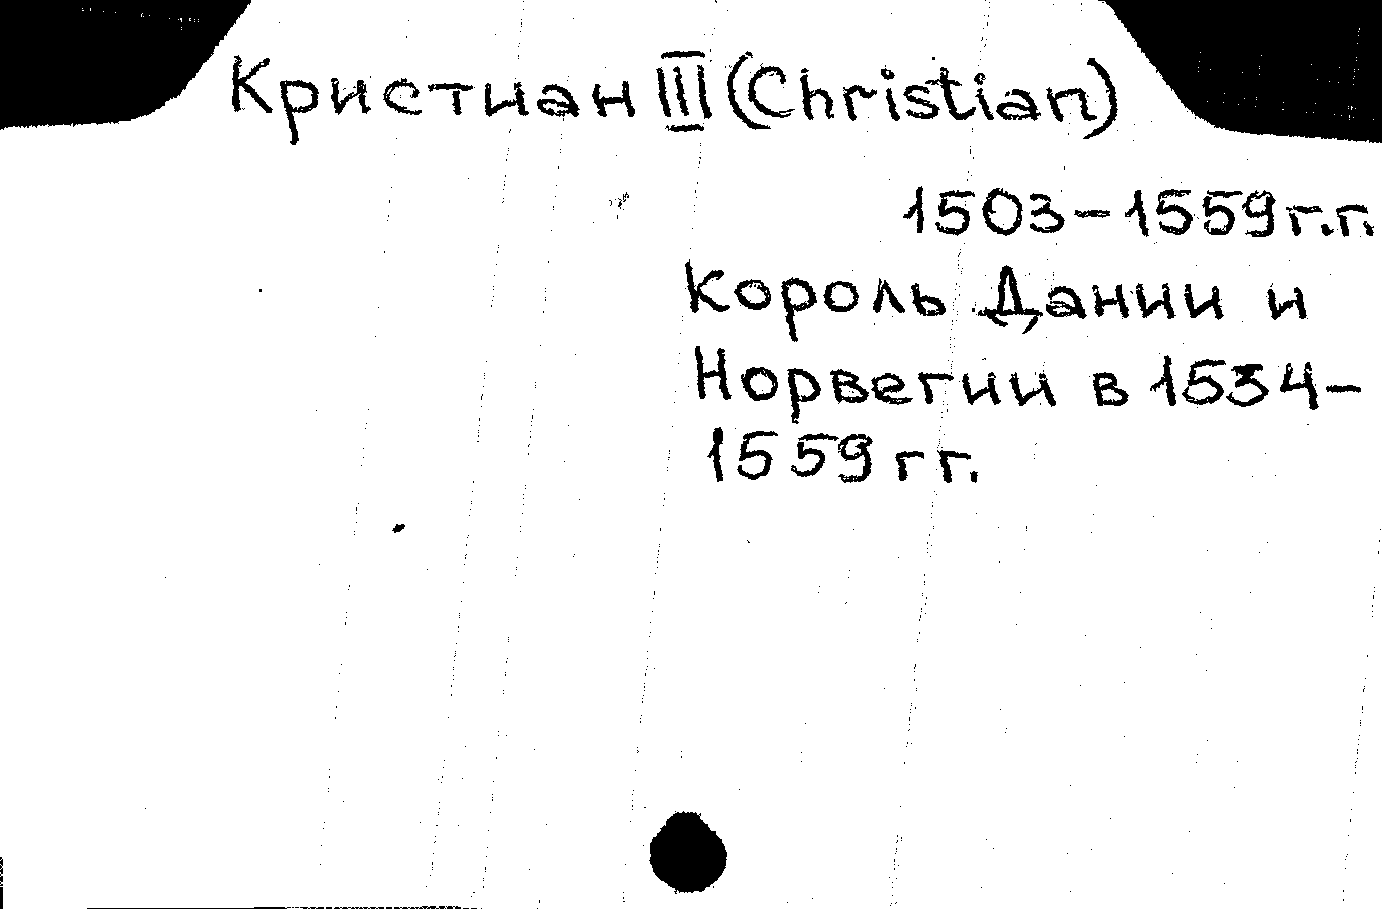 Кристиан III (Christian)
1503-1559г.г.
Король Дании и
Норвегии в 1534-
1559 гг.